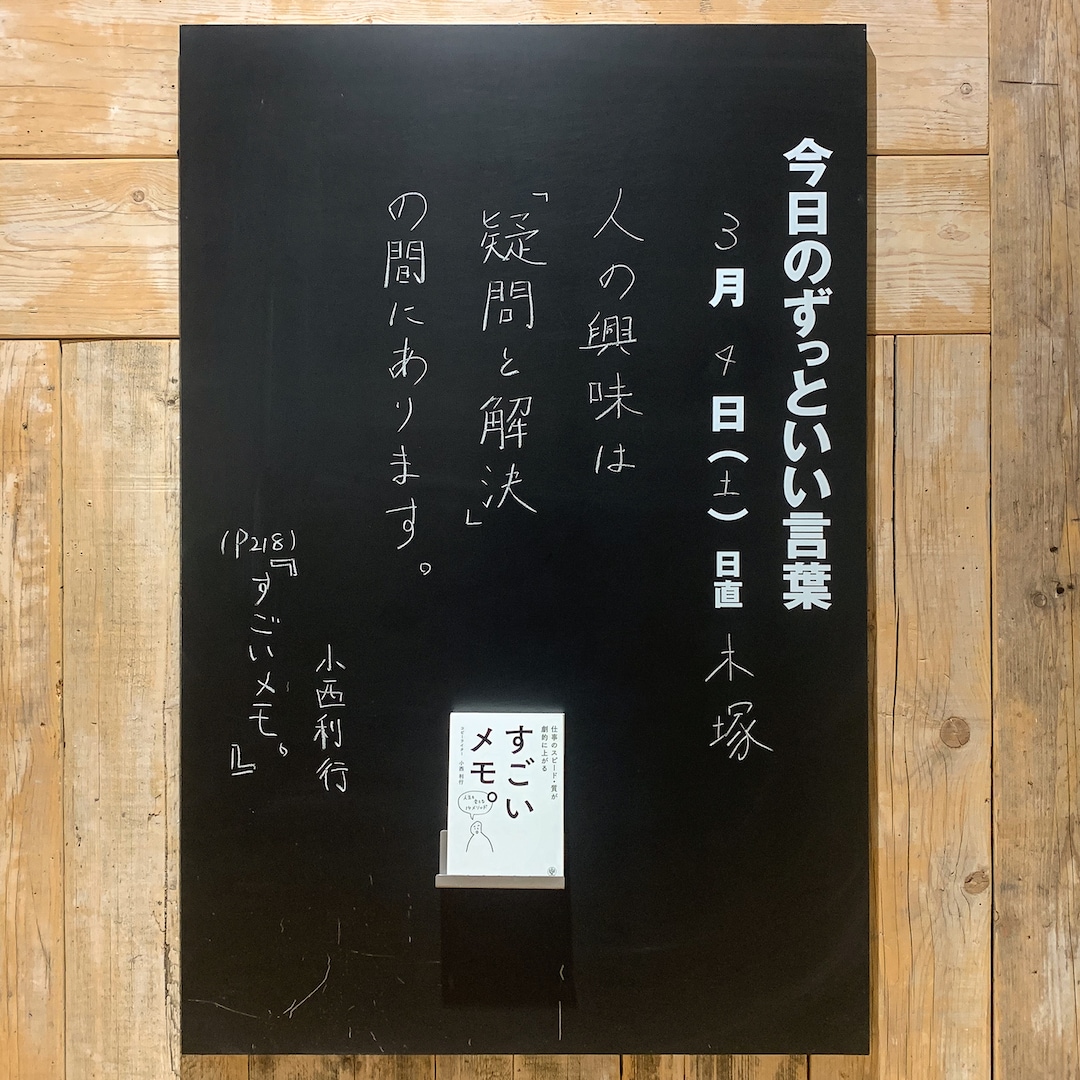 今日のずっといい言葉
3月4日(土) 日直 木塚
人の興味は
「疑問と解決」
の間にあります。
小西利行
(P218)
『すごいメモ。』
仕事のスピード・質が
劇的に上がる
すごい
メモ。
小西利行